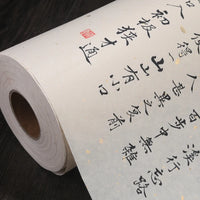 溪行忘路
百步中無雜
人甚異之復前
得山山有小口
口入初极狹才通